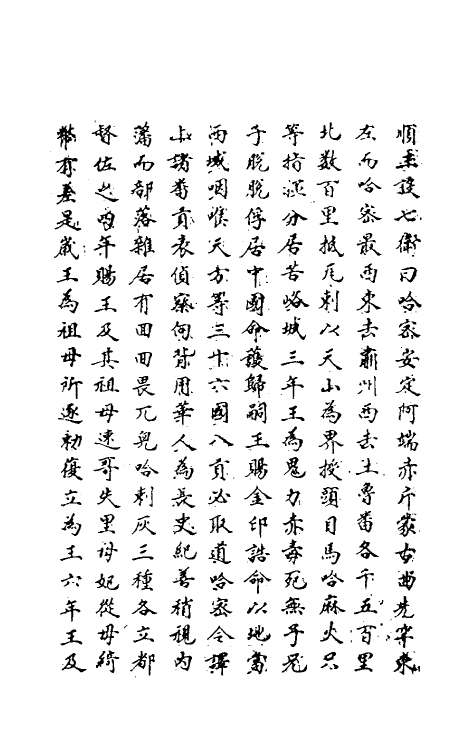 順王設七衛曰哈密安定阿端赤斤蒙古曲先罕東
左而哈密最西東去肅州西去土魯番各千五百里
北数百里抵瓦剌以天山為界授頭目馬哈麻火只
等指揮分居苦峪城三年王為鬼力赤毒死無子兄
子脫脫俘居中國命護歸嗣王賜金印誥命以地當
西域咽喉天方等三十六國入貢必取道哈密令譯
上諸番貢表偵察向背用華人為長史紀善稍視内
藩而部落雜居有回回畏兀兒哈剌灰三種各立都
督佐之明年賜王及其祖母速哥失里母妃從母綺
幣有差是歲王為祖母所逐勑復立為王六年王及